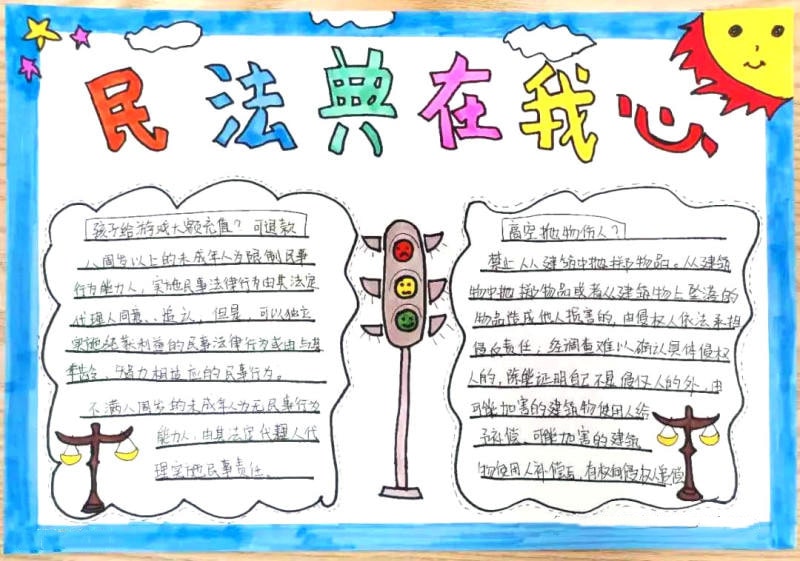 民法典在我心
孩子给游戏大额充值？可退款
八周岁以上的未成年人为限制民事
行为能力人，实施民事法律行为由其法定
代理人同意、追认，但是，可以独立
实施纯获利益的民事法律行为或由与其
年龄、智力相适应的民事行为。
不满八周岁的未成年人为无民事行为
能力人，由其法定代理人代
理实施民事责任。
高空抛物伤人？
禁止从从建筑中抛掷物品。从建筑
物中抛掷物品或者从建筑物上坠落的
物品造成他人损害的，由侵权人依法承担
侵权责任；经调查难以确认具体侵权
人的，除能证明自己不是侵权人的外，由
可能加害的建筑物使用人给
予补偿，可能加害的建筑
物使用人补偿后，有权向侵权人追偿